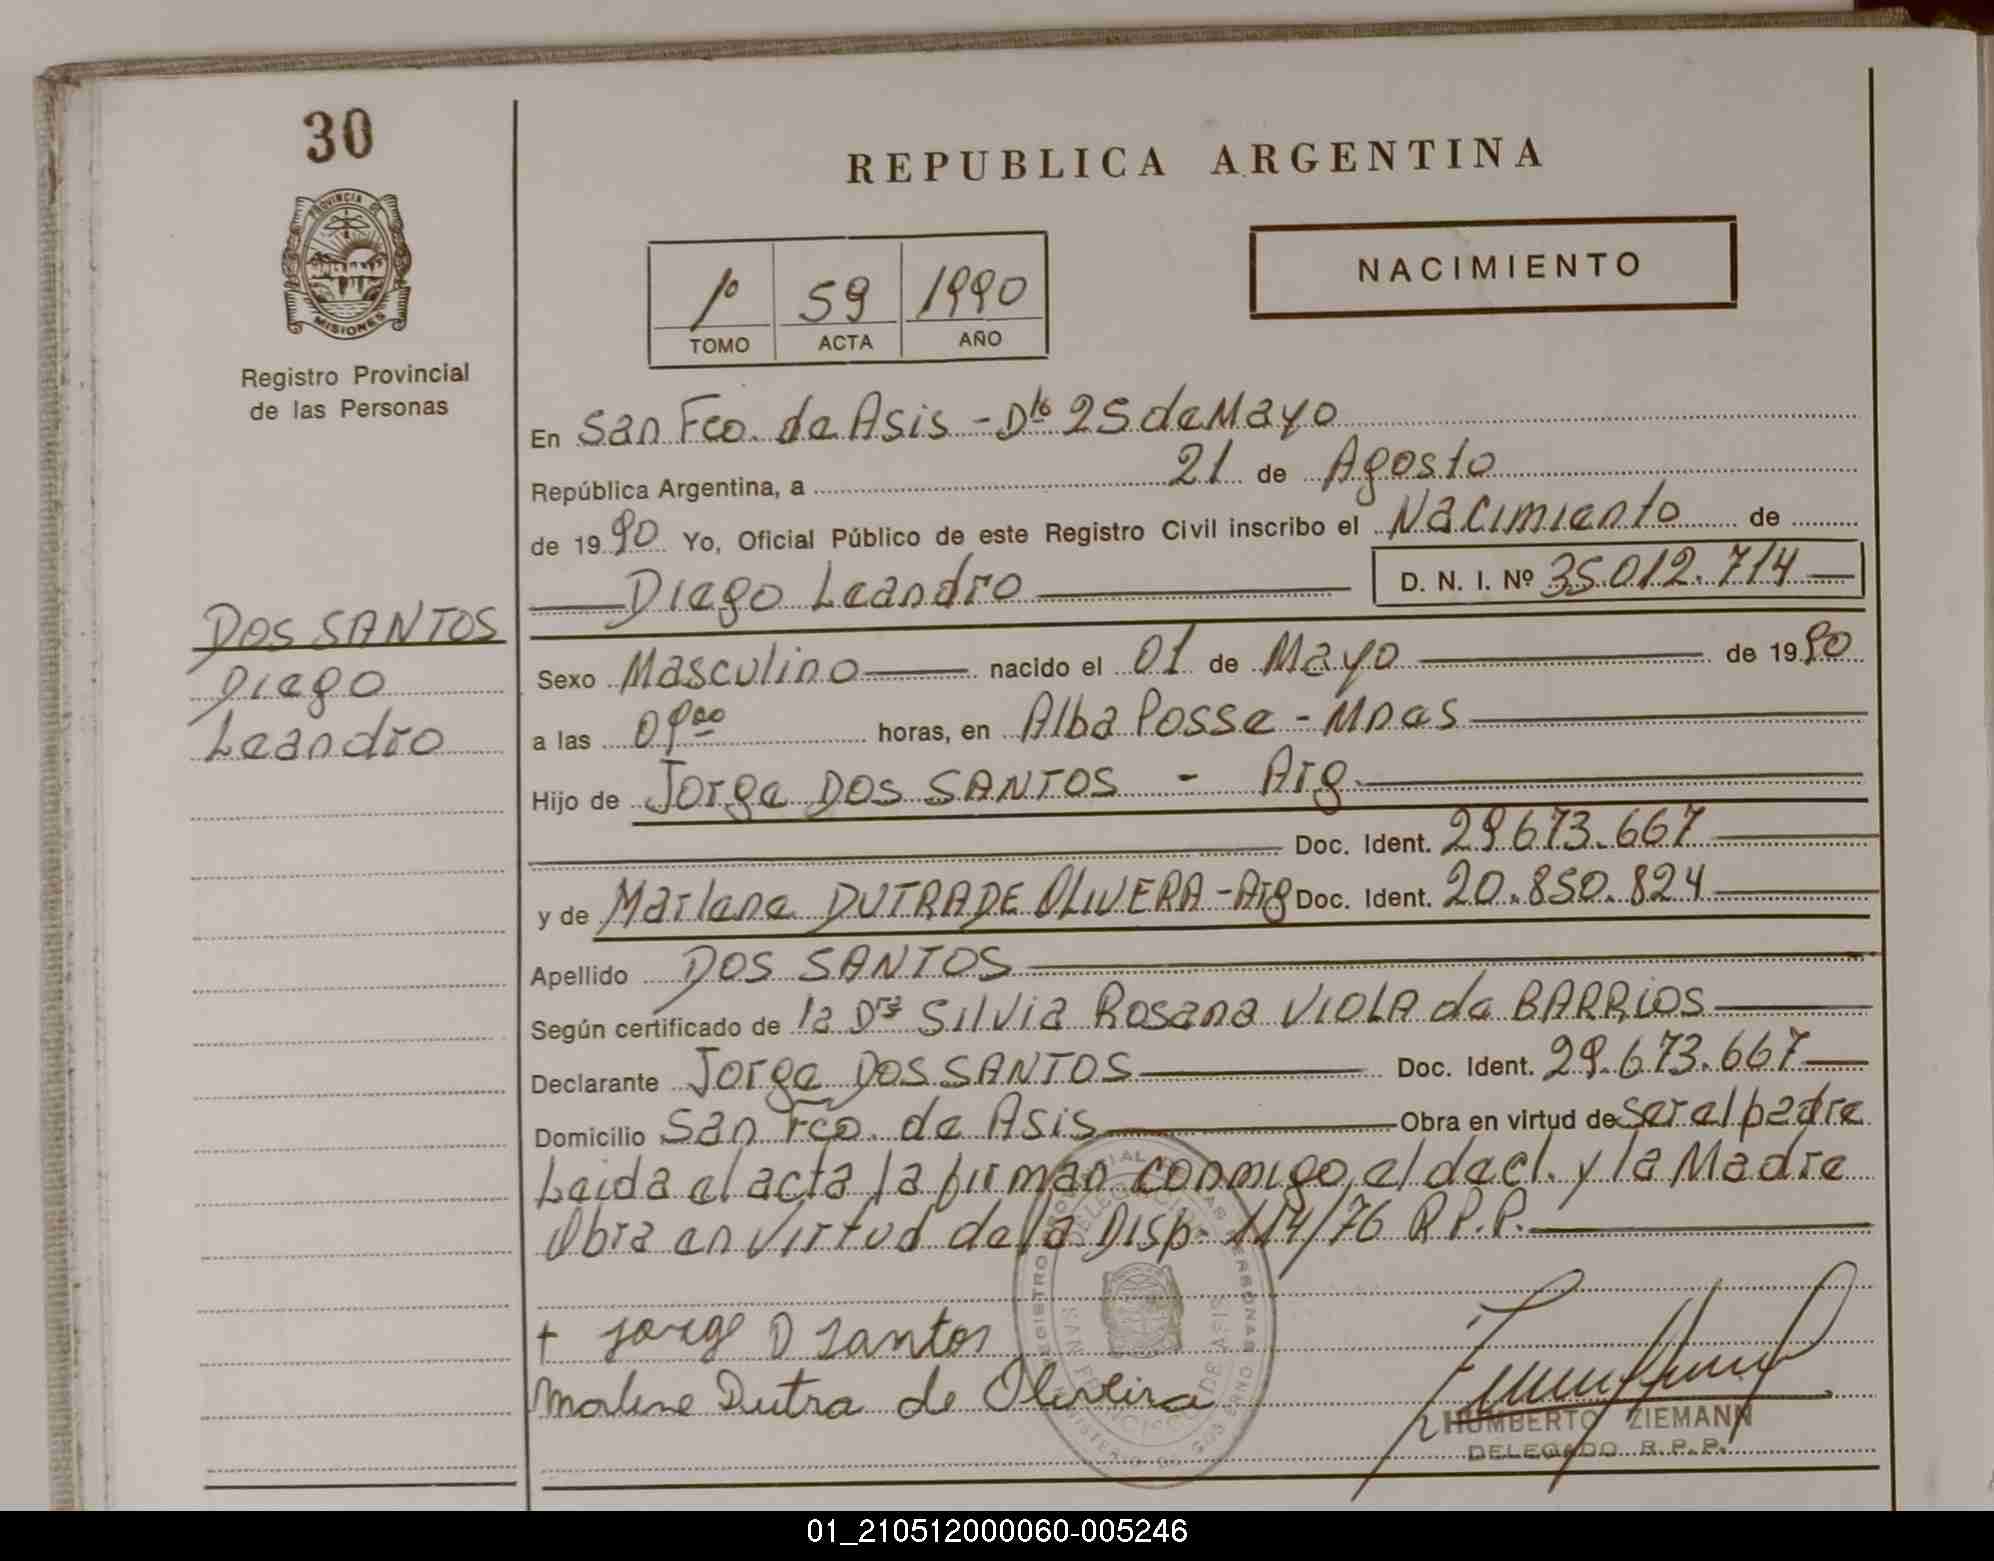 30
PROVINCIA DE
MISIONES
Registro Provincial
de las Personas
REPUBLICA ARGENTINA
1º 59 1990
TOMO ACTA AÑO
NACIMIENTO
En San Fco. de Asis - Dto 25 de Mayo
República Argentina, a 21 de Agosto
de 1990 Yo, Oficial Público de este Registro Civil inscribo el Nacimiento de
Diego Leandro D. N. I. Nº 35.012.714
DOS SANTOS
Diego
Leandro
Sexo Masculino nacido el 01 de Mayo de 1990
a las 09 00 horas, en Alba Posse - Mnes
Hijo de Jorge DOS SANTOS - Arg
Doc. Ident. 29.673.667
y de Marlene DUTRA DE OLIVERA - Arg Doc. Ident. 20.850.824
Apellido DOS SANTOS
Según certificado de la Dra Silvia Rosana VIOLA de BARRIOS
Declarante Jorge DOS SANTOS Doc. Ident. 29.673.667
Domicilio San Fco. de Asis Obra en virtud de ser el padre
Leida el acta la firman conmigo, el decl. y la Madre
Obra en Virtud de la Disp. 114/76 R.P.P.
+ Jorge D Santos
Marlene Dutra de Oliveira
HUMBERTO ZIEMANN
DELEGADO R.P.P.
01_210512000060-005246